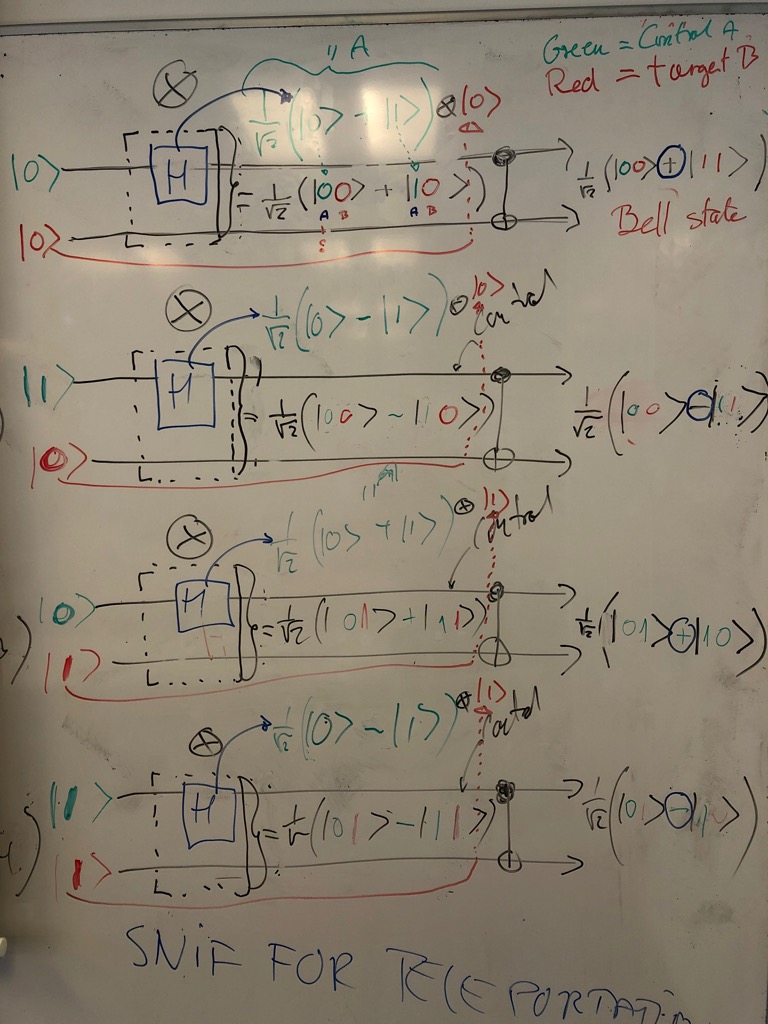 " A
Green = Control A
Red = target B
⊗
1/√2 (|0> - |1>) ⊗ |0>
|0>
H
= 1/√2 (|00> + |10>)
A B A B
1/√2 (|00> ⊕ |11>)
Bell state
|0>
⊗
1/√2 (|0> - |1>) ⊗ |0>
Control
|1>
H
= 1/√2 (|00> - |10>)
1/√2 (|00> ⊖ |11>)
|0>
⊗
1/√2 (|0> + |1>) ⊗ |1>
Control
|0>
H
= 1/√2 (|01> + |11>)
1/√2 (|01> ⊕ |10>)
|1>
⊗
1/√2 (|0> - |1>) ⊗ |1>
Control
|1>
H
= 1/√ (|01> - |11>)
1/√2 (|01> ⊖ |10>)
|1>
SNIF FOR TELEPORTATIO